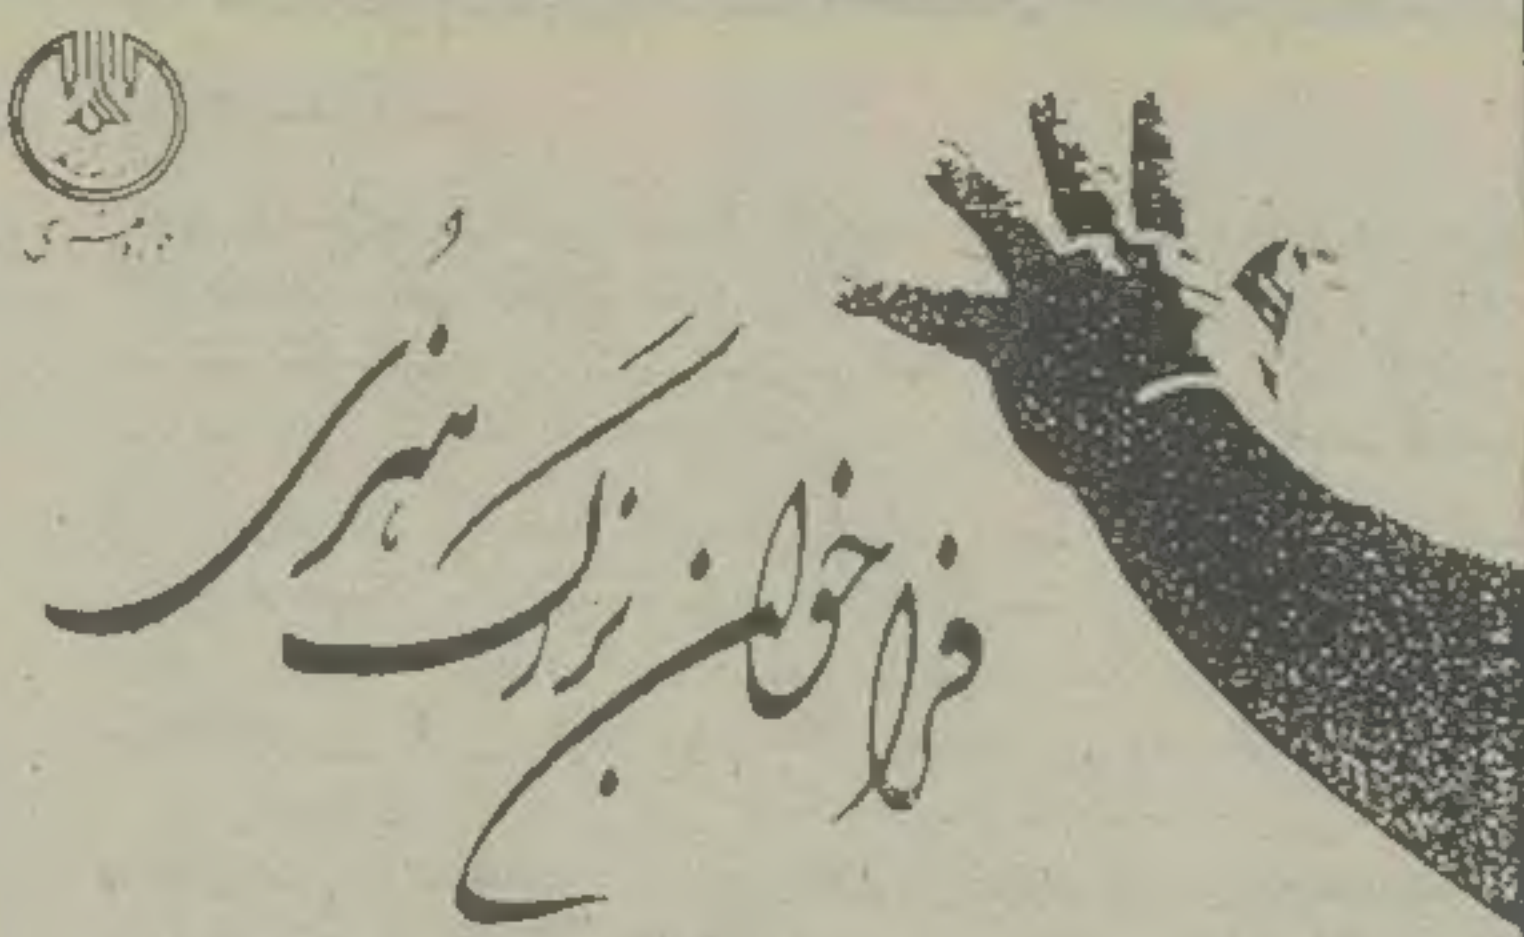 فراخوان بزرگ هنری